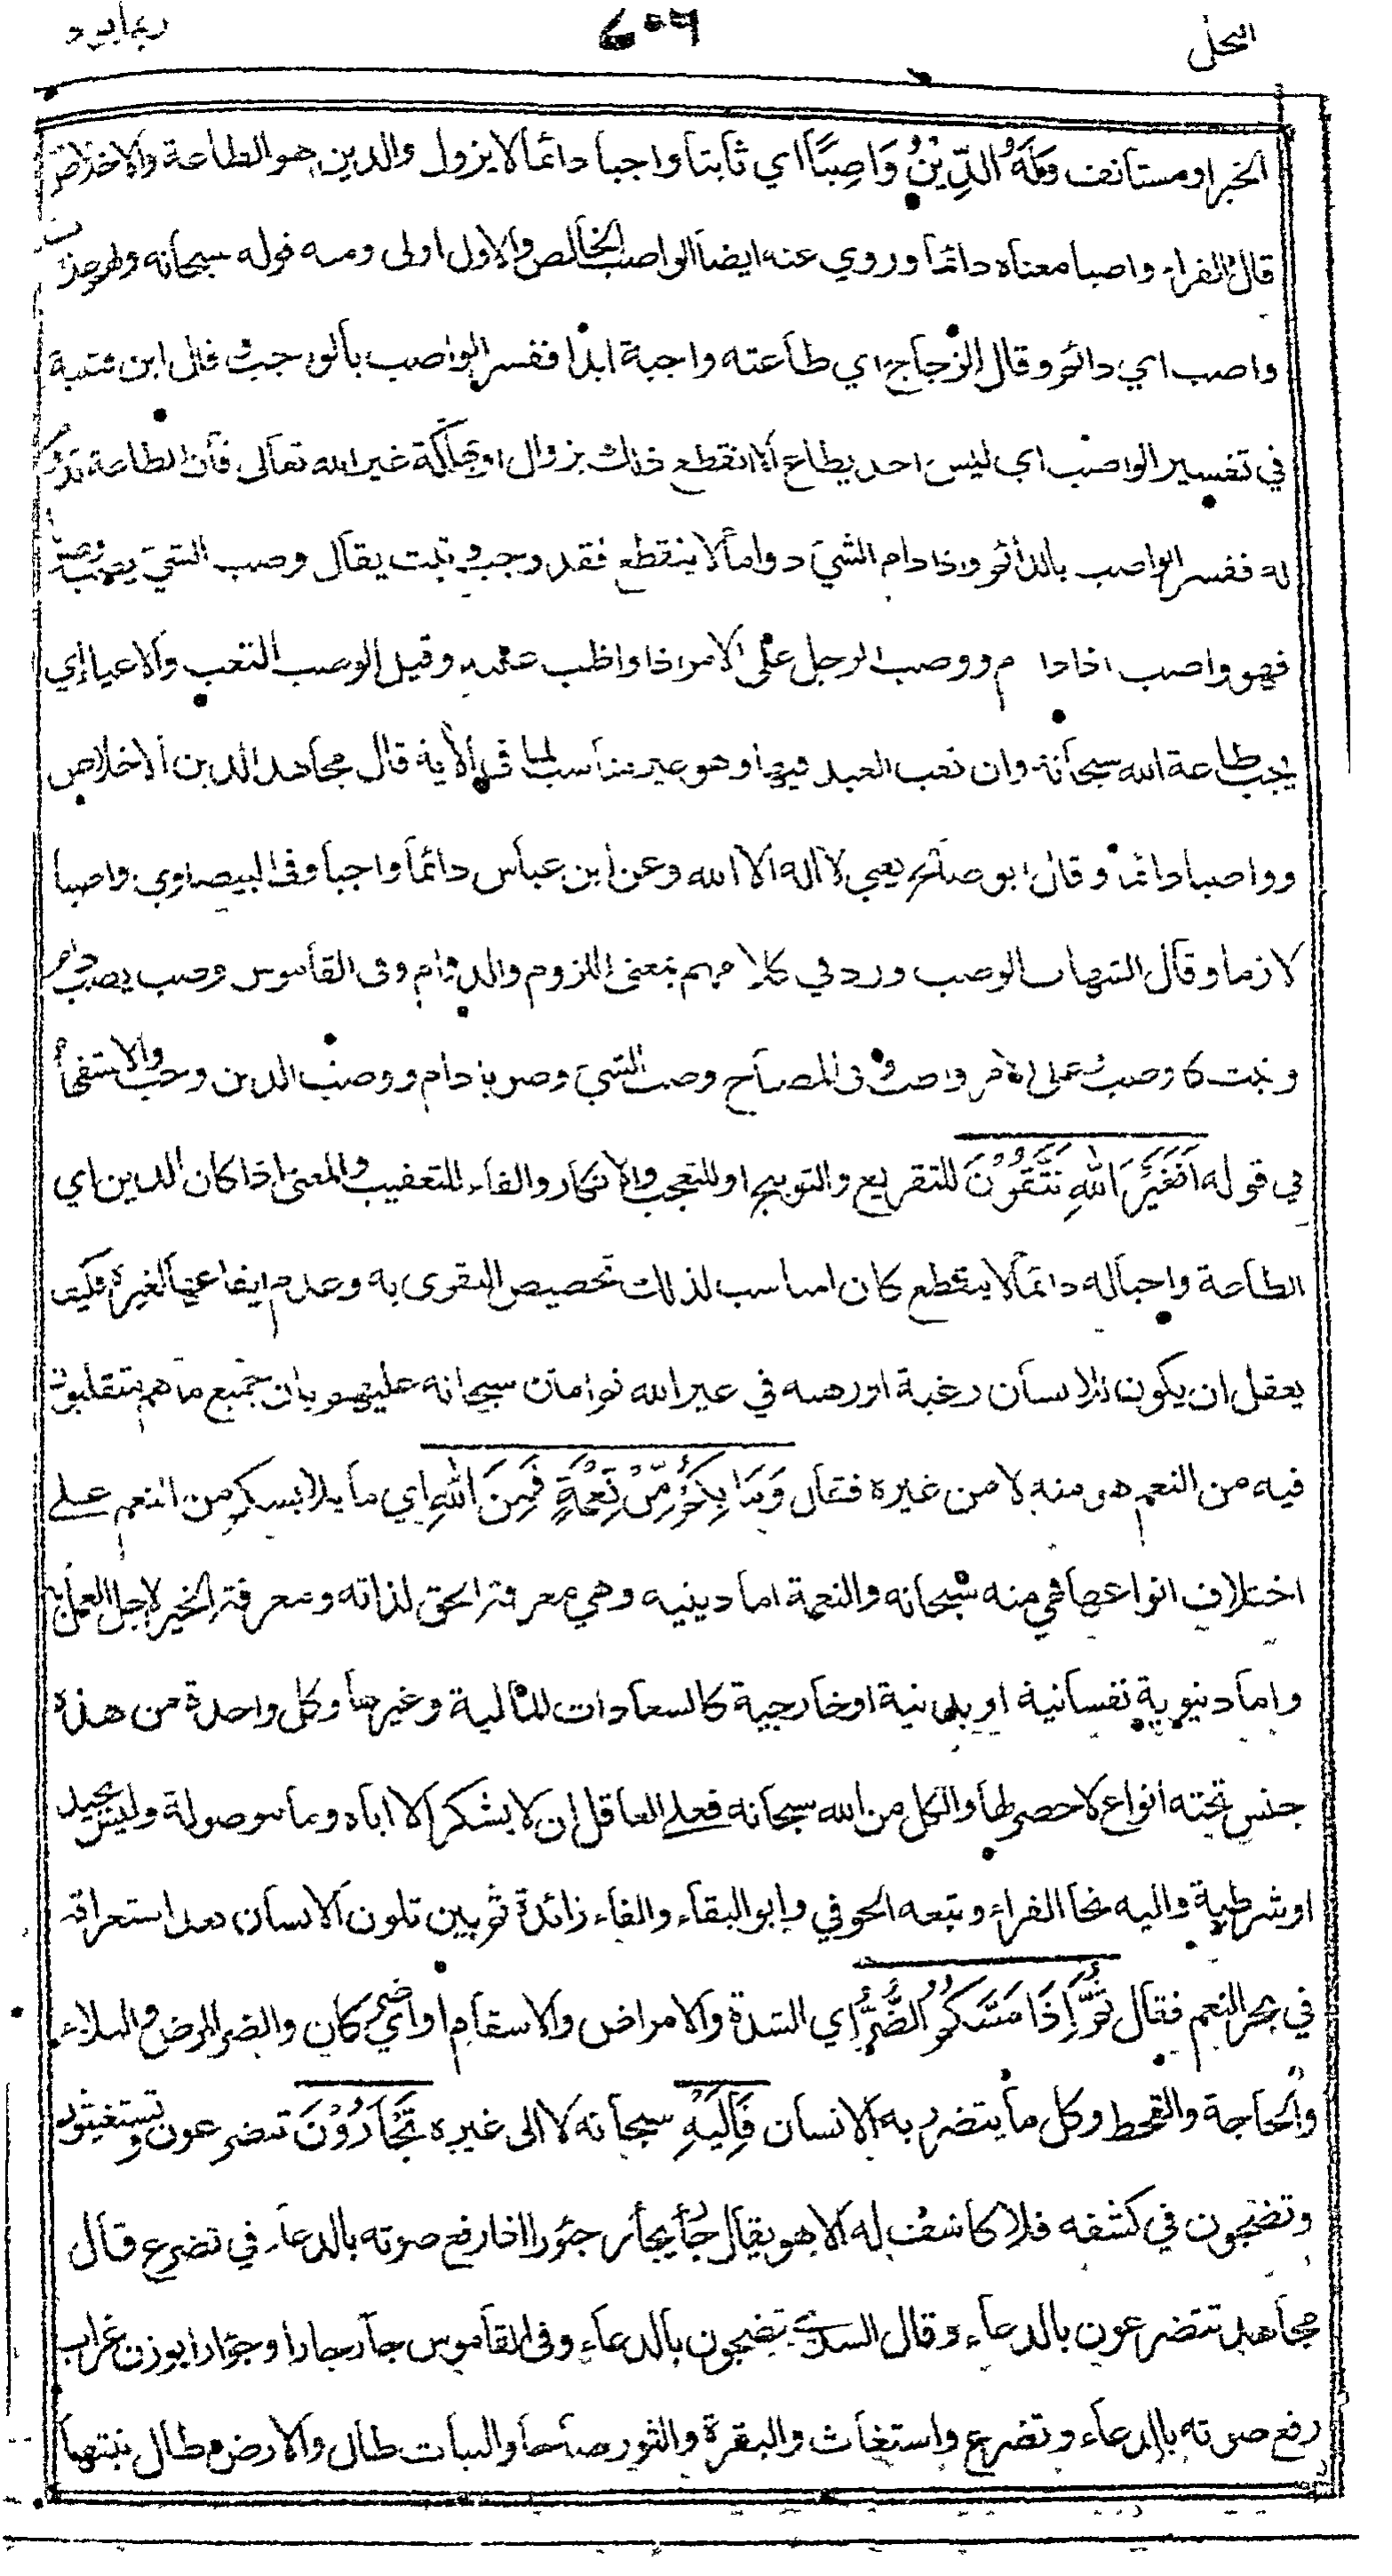 النحل ٦٠٦ ربمايود
الخبر او مستانف وَلَهُ الدِّيْنُ وَاصِبًا اي ثابتا واجبا دائما لا يزول والدين هو الطاعة والاخلاص
قال الفراء واصبا معناه دائما وروي عنه ايضا الواصب الخالص والاول اولى ومنه قوله سبحانه ولهم عذاب
واصب اي دائم وقال الزجاج اي طاعته واجبة ابدا ففسر الواصب بالواجب قال ابن قتيبة
في تفسير الواصب اي ليس احد يطاع الا انقطع ذلك بزوال او هلكة غير الله تعالى فان الطاعة تدوم
له ففسر الواصب بالدائم واذا دام الشيء دواما لا ينقطع فقد وجب وثبت يقال وصب الشيء يصب وصوبا
فهو واصب اذا دام ووصب الرجل على الامر اذا واظب عليه وقيل الوصب التعب والاعياء اي
يجب طاعة الله سبحانه وان تعب العبد فيها وهو غير مناسب لما في الأية قال مجاهد الدين الاخلاص
وواصبا دائما وقال ابو صالح يعني لا اله الا الله وعن ابن عباس دائما واجبا وفى البيضاوي واصبا
لازما وقال الشهاب الوصب ورد في كلامهم بمعنى اللزوم والدوام وفى القاموس وصب يصب دام
وثبت كاوصب وعلى الامر واصب وفى المصباح وصب الشيء وصوبا دام ووصب الدين وجب والاستفهام
في قوله اَفَغَيْرَ اللهِ تَتَّقُوْنَ للتقريع والتوبيخ او للتعجب والانكار والفاء للتعقيب والمعنى اذا كان الدين اي
الطاعة واجبا له دائما لا ينقطع كان المناسب لذلك تخصيص التقوى به وعدم ايقاعها لغيره فكيف
يعقل ان يكون للانسان رغبة او رهبة في غير الله ثم امتن سبحانه عليهم بان جميع ما هم متقلبون
فيه من النعم هو منه لا من غيره فقال وَمَا بِكُمْ مِّنْ نِّعْمَةٍ فَمِنَ اللهِ اي ما يلابسكم من النعم على
اختلاف انواعها فهي منه سبحانه والنعمة اما دينية وهي معرفة الحق لذاته ومعرفة الخير لاجل العمل به
واما دنيوية نفسانية او بدنية او خارجية كالسعادات المالية وغيرها وكل واحدة من هذه
جنس تحته انواع لا حصر لها والكل من الله سبحانه فعلى العاقل ان لا يشكر الا اياه وما موصولة وليس بجيد
او شرطية واليه نحا الفراء وتبعه الحوفي وابو البقاء والفاء زائدة ثم بين تلون الانسان بعد استغراقه
في بحر النعم فقال ثُمَّ اِذَا مَسَّكُمُ الضُّرُّ اي الشدة والامراض والاسقام او اي ضر كان والضر المرض والبلاء
والحاجة والقحط وكل ما يتضرر به الانسان فَاِلَيْهِ سبحانه لا الى غيره تَجْأَرُوْنَ تتضرعون وتستغيثون
وتضجون في كشفه فلا كاشف له الا هو يقال جأر يجأر جئورا اذا رفع صوته بالدعاء في تضرع قال
مجاهد تتضرعون بالدعاء وقال السدي تضجون بالدعاء وفى القاموس جأر جارا وجؤارا بوزن غراب
رفع صوته بالدعاء وتضرع واستغاث والبقرة والثور صاحا والنبات طال والارض طال نبتها